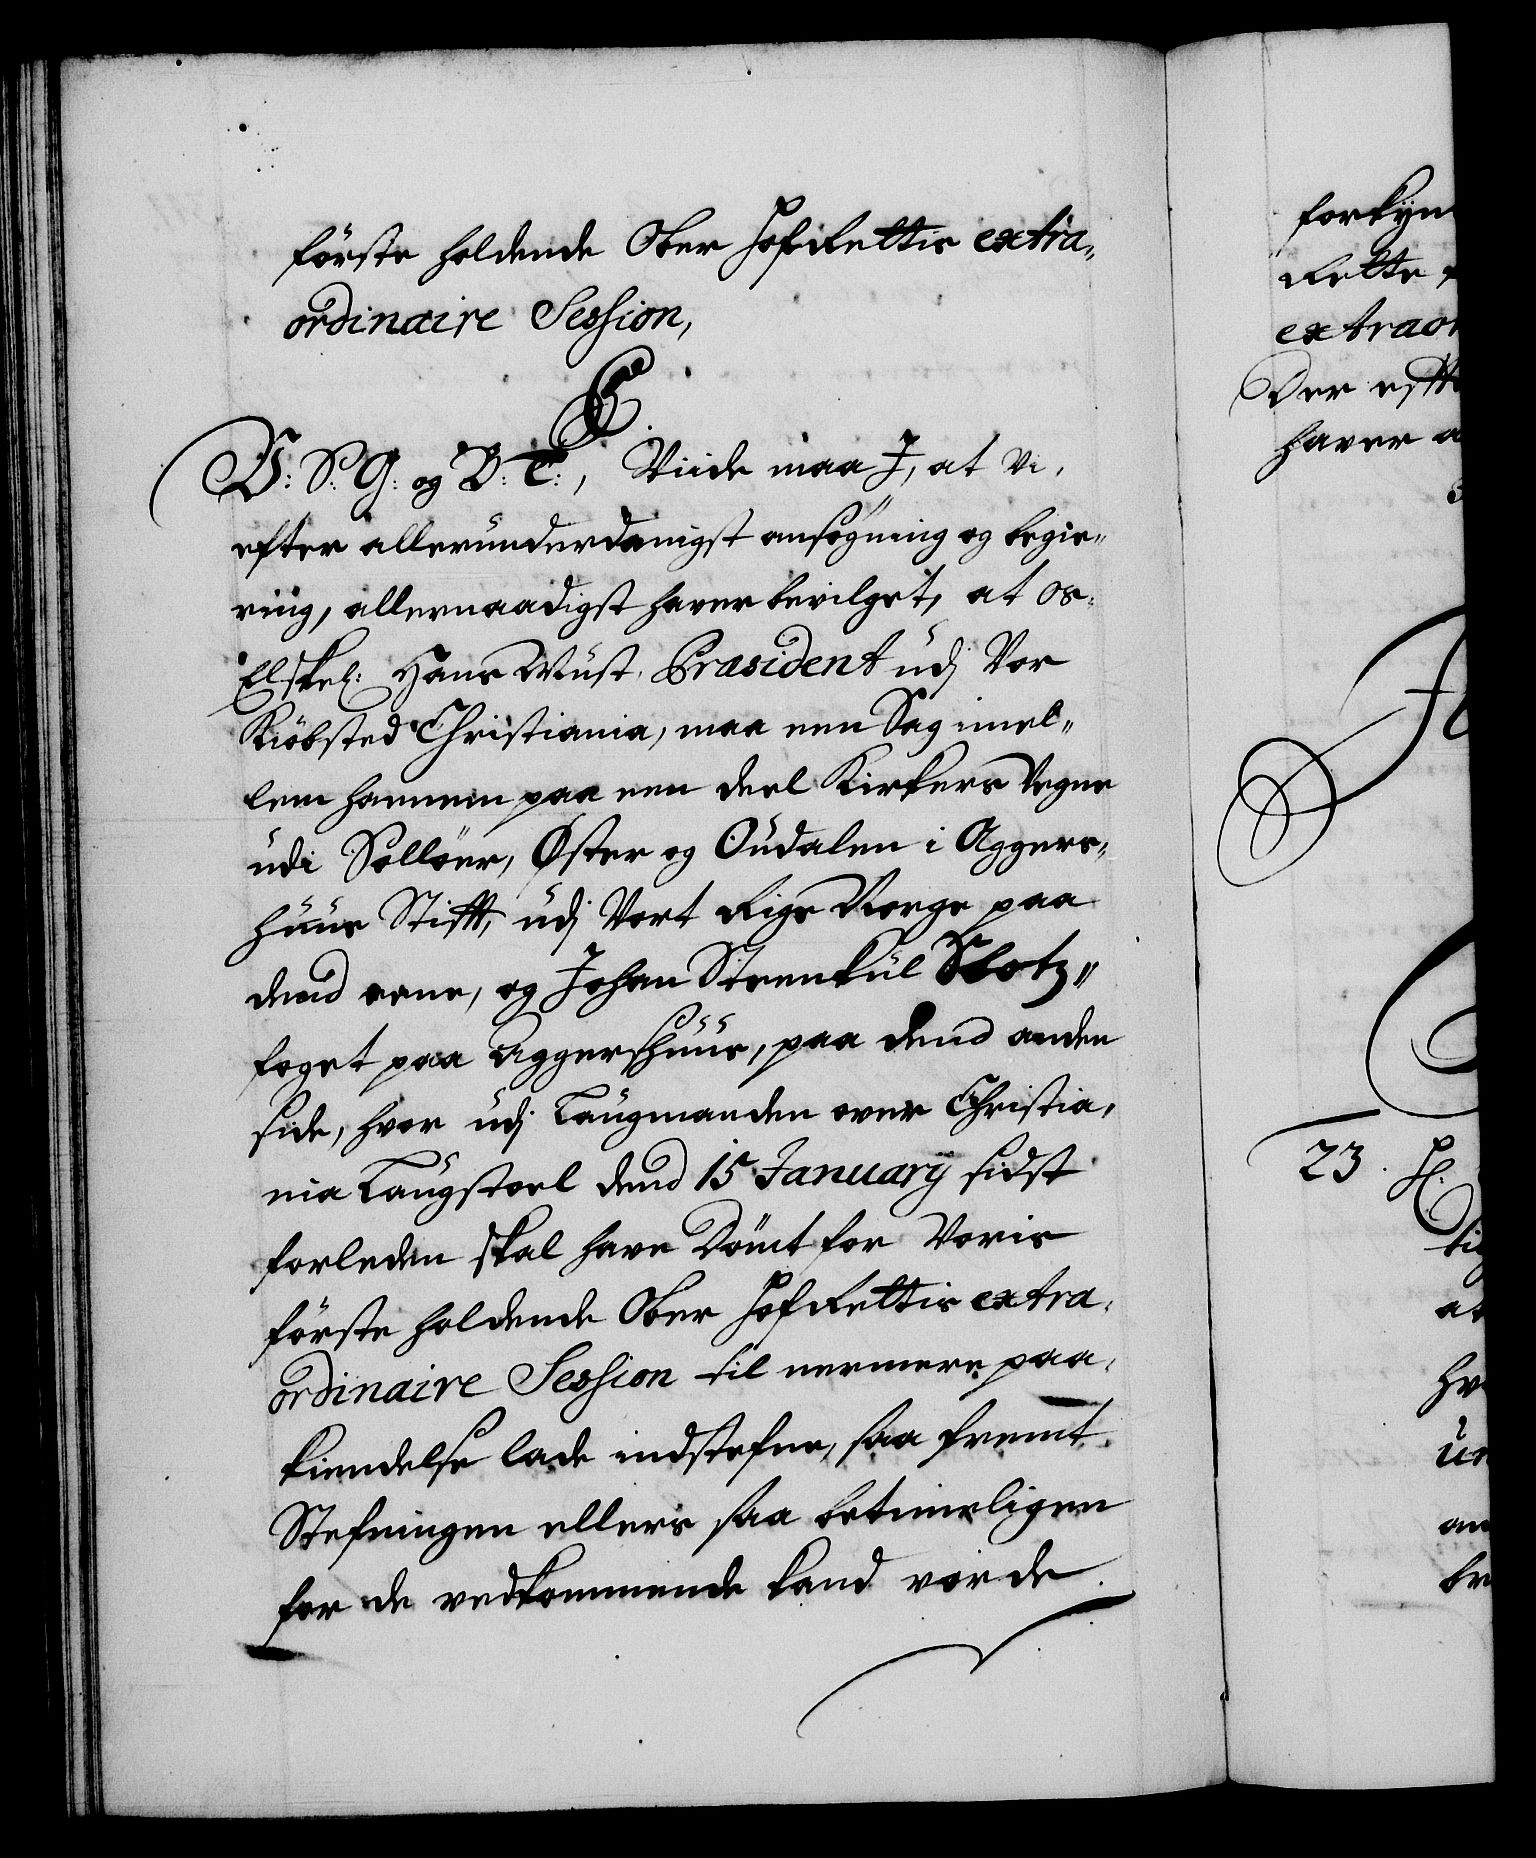 förste holdende Ober HofRettis extra-
ordinaire Session,
C
V: S: G: og B: T:, Viide maa I, at Vi,
efter allerunderdanigst ansøgning og begie-
ring, allernaadigst haver bevilget, at os
Elskel: Hans Wüst, Præsident udj Vor
Kiöbsted Christiania, maa een Sag imel-
lem hannem paa een deel Kirkers Vegne
udi Solløer, Øster og Oudalen i Aggers-
huus Stifft, udj Vort Rige Norge paa
dend eene, og Johan Steenkul Slotz-
foget paa Aggershuus, paa dend anden
side, hvor udj Laugmanden over Christia-
nia Laugstoel dend 15 Januarij sidst
forleden skal have Dömt for Voris
förste holdende Ober HofRettis extra-
ordinaire Session til nermere paa-
kiendelse lade indstefne, saa fremt
Stefningen ellers saa betimeligen
for de vedkommende kand vorde
forkyn
Rette
extraor
Der efft
haver a
23. H.
tig
at
hv
un
an
be